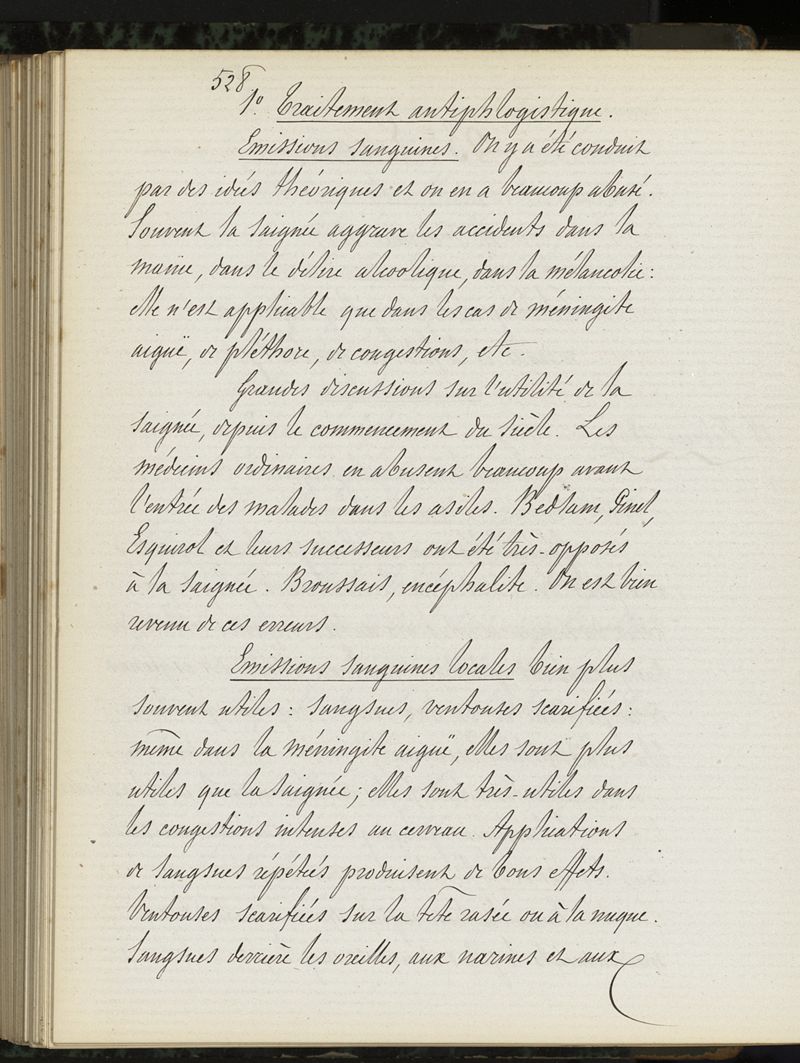 528
1º. Traitement antiphlogistique.
Emissions sanguines. On y a été conduit
par des idées théoriques et on en a beaucoup abusé.
Souvent la saignée aggrave les accidents dans la
manie, dans le délire alcoolique, dans la mélancolie:
elle n'est applicable que dans les cas de méningite
aiguë, de pléthore, de congestions, etc.
Grandes discussions sur l'utilité de la
saignée, depuis le commencement du siècle. Les
médecins ordinaires en abusent beaucoup avant
l'entrée des malades dans les asiles. Bedlam, Pinel,
Esquirol et leurs successeurs ont été très-opposés
à la saignée. Broussais, encéphalite. On est bien
revenu de ces erreurs.
Emissions sanguines locales bien plus
souvent utiles: sangsues, ventouses scarifiées:
même dans la méningite aiguë, elles sont plus
utiles que la saignée; elles sont très-utiles dans
les congestions intenses au cerveau. Applications
de sangsues répétées produisent de bons effets.
Ventouses scarifiées sur la tête rasée ou à la nuque.
Sangsues derrière les oreilles, aux narines et aux